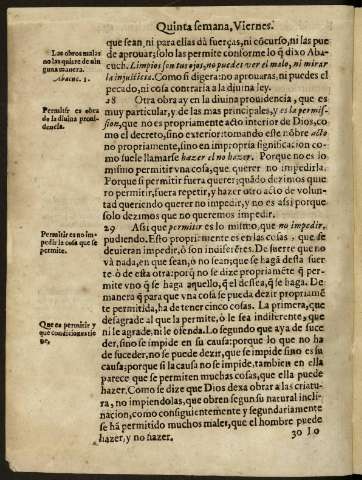 Quinta semana, Viernes.
que sean, ni para ellas dà fuerças, ni cõcurso, ni las pue
de aprouar; solo las permite conforme lo q̃ dixo Aba
cuch. Limpios son tus ojos, no puedes ver el malo, ni mirar
la injusticia. Como si digera: no aprouaras, ni puedes el
pecado, ni cosa contraria a la diuina ley.
Las obras malas
no las quiere de nin
guna manera.
Abacuc. 1.
28 Otra obra ay en la diuina prouidencia, que es
muy particular, y de las mas principales, y es la permis-
sion, que no es propriamente acto interior de Dios, co
mo el decreto, sino exterior: tomando este nõbre acto
no propriamente, sino en impropria significacion co
mo suele llamarse hazer el no hazer. Porque no es lo
mismo permitir vna cosa, que querer no impedirla.
Porque si permitir fuera querer; quãdo dezimos quie
ro permitir, fuera repetir, y hazer otro acto de volun
tad queriendo querer no impedir, y no es assi porque
solo dezimos que no queremos impedir.
Permitir es obra
de la diuina proui
dencia.
29 Assi que permitir es lo mismo, que no impedir,
pudiendo. Esto propriamente es en las cosas, que se
deuieran impedir, ò son indiferẽtes. De suerte que no
và nada, en que sean, ò no sean; que se haga desta suer
te ò de esta otra: porq̃ no se dize propriamẽte q̃ per-
mite vno q̃ se haga aquello, q̃ el dessea, q̃ se haga. De
manera q̃ para que vna cosa se pueda dezir propriamẽ
te permitida, ha de tener cinco cosas. La primera, que
desagrade al que la permite, ò le sea indiferente, que
ni le agrade, ni le ofenda. Lo segundo que aya de suce
der, sino se impide en su causa: porque lo que no ha
de suceder, no se puede dezir, que se impide sino es su
causa; porque si la causa no se impide, tambien en ella
parece que se permiten muchas cosas, que ella puede
hazer. Como se dize que Dios dexa obrar a las criatu
ra, no impiendolas, que obren segun su natural incli
nacion, como consiguientemente y segundariamente
se hã permitido muchos males, que el hombre puede
hazer, y no hazer.
Permitir es no im
pedir la cosa que se
permite.
Que es permitir y
que condiciones tie
ne,
30 Lo